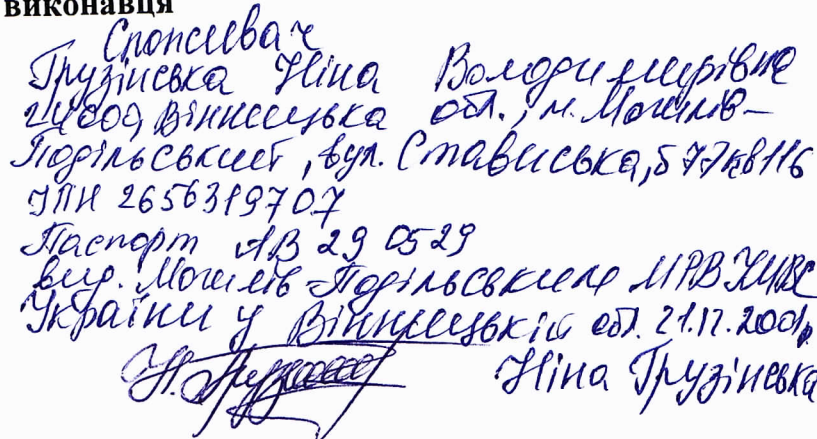 виконавця
Споживач
Грузінська Ніна Володимирівна
24000, Вінницька обл., м. Могилів-
Подільський, вул. Стависька, б 77 кв 116
ІПН 2656319707
Паспорт АВ 29 05 29
вид. Могилів-Подільським МРВ УМВС
України у Вінницькій обл. 21.12.2001р.
Ніна Грузінська